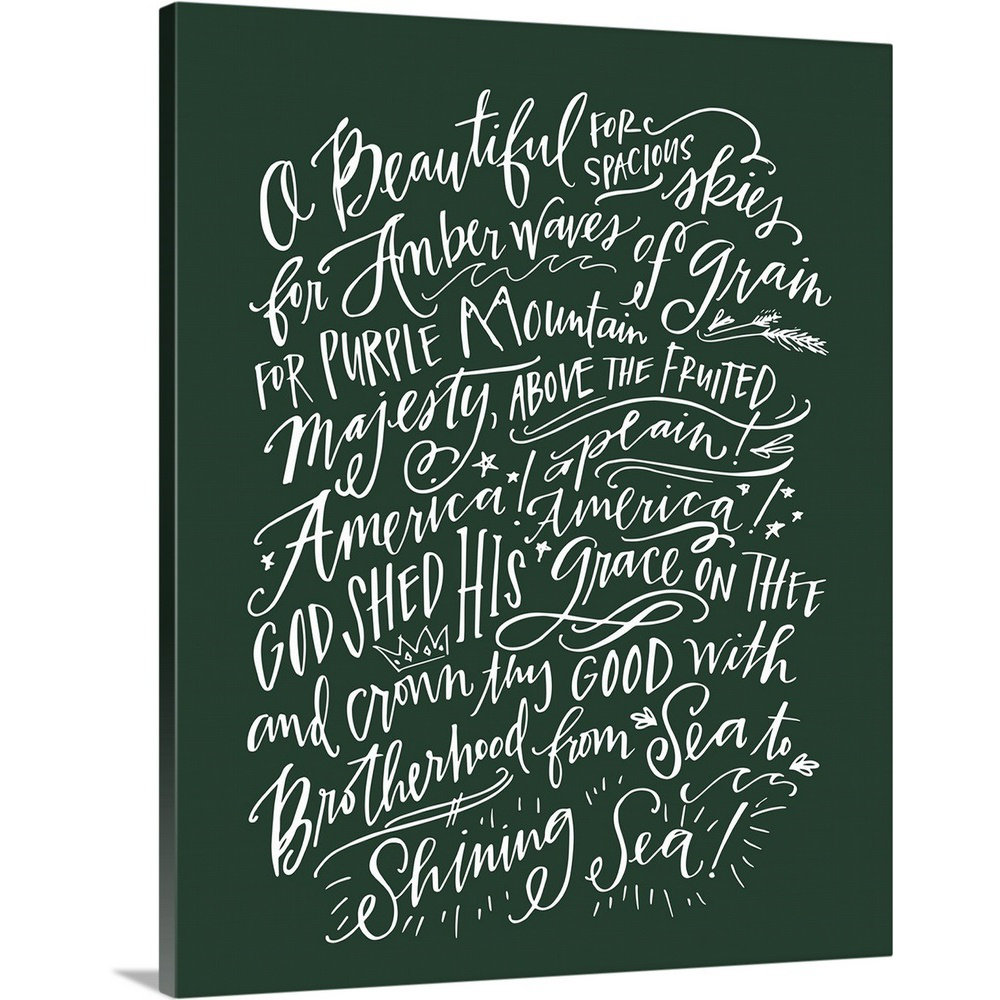 O Beautiful FOR SPACIOUS skies
for Amber waves of grain
FOR PURPLE Mountain
majesty, ABOVE THE FRUITED
plain!
America! America!
GOD SHED HIS grace ON THEE
and crown thy GOOD with
Brotherhood from Sea to
Shining Sea!